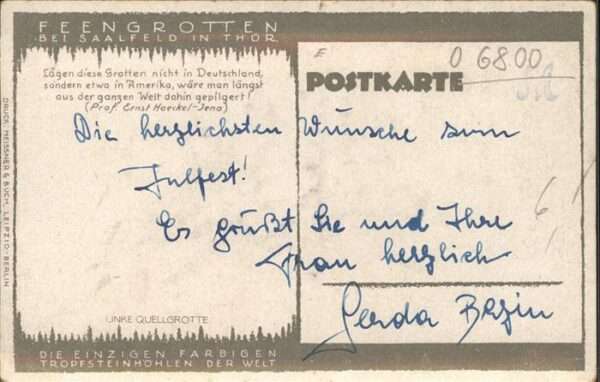 FEENGROTTEN
BEI SAALFELD IN THÜR
Lägen diese Grotten nicht in Deutschland,
sondern etwa in Amerika, wäre man längst
aus der ganzen Welt dahin gepilgert!
(Prof. Ernst Haeckel-Jena)
E
0 6800
POSTKARTE
Die herzlichsten Wünsche zum
Julfest!
Es grüßt Sie und Ihre
Frau herzlich
Gerda
LINKE QUELLGROTTE
DIE EINZIGEN FARBIGEN
TROPFSTEINHÖHLEN DER WELT
DRUCK: MEISSNER & BUCH, LEIPZIG-BERLIN